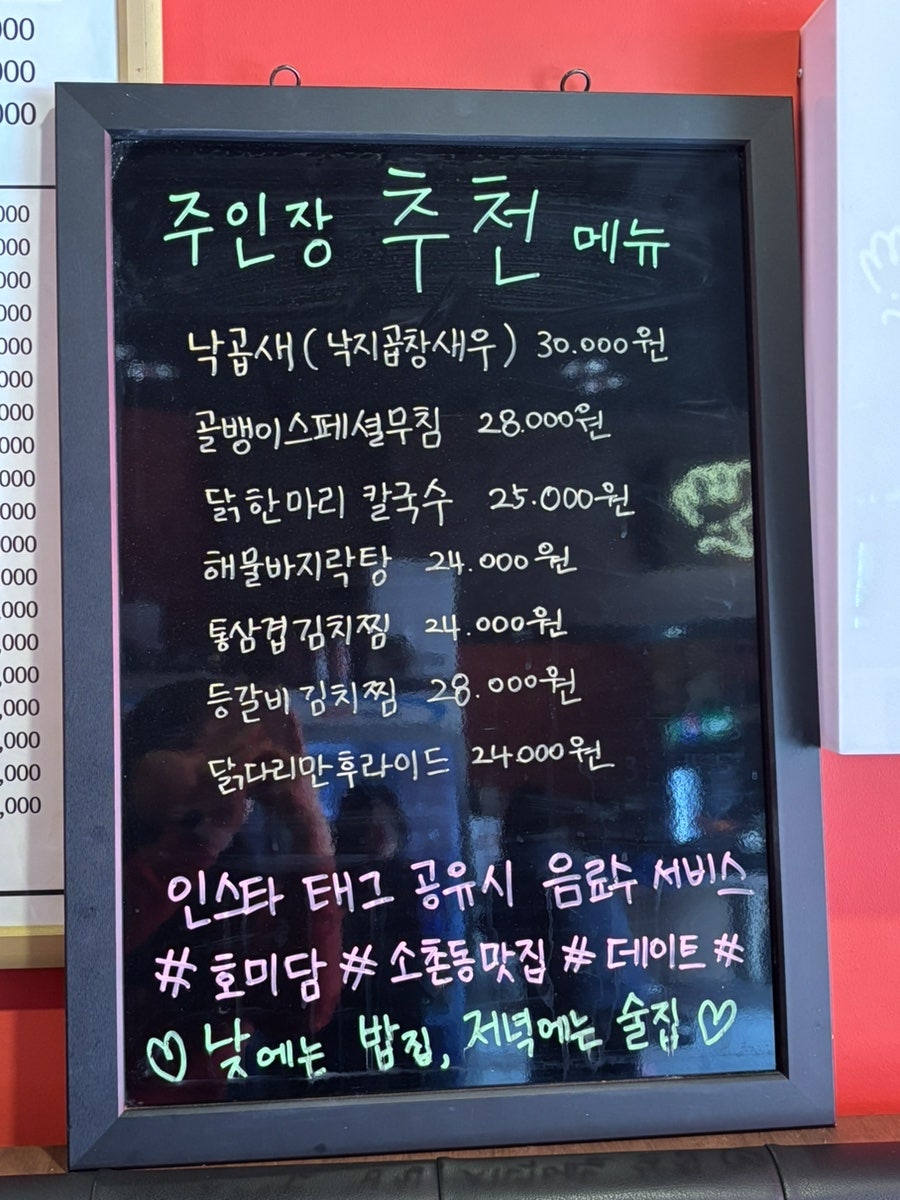 주인장 추천 메뉴
낙곱새 (낙지곱창새우) 30.000원
골뱅이스페셜무침 28.000원
닭한마리 칼국수 25.000원
해물바지락탕 24.000원
통삼겹김치찜 24.000원
등갈비김치찜 28.000원
닭다리만후라이드 24000원
인스타 태그 공유시 음료수 서비스
# 호미담 # 소촌동맛집 # 데이트 #
♡ 낮에는 밥집, 저녁에는 술집 ♡